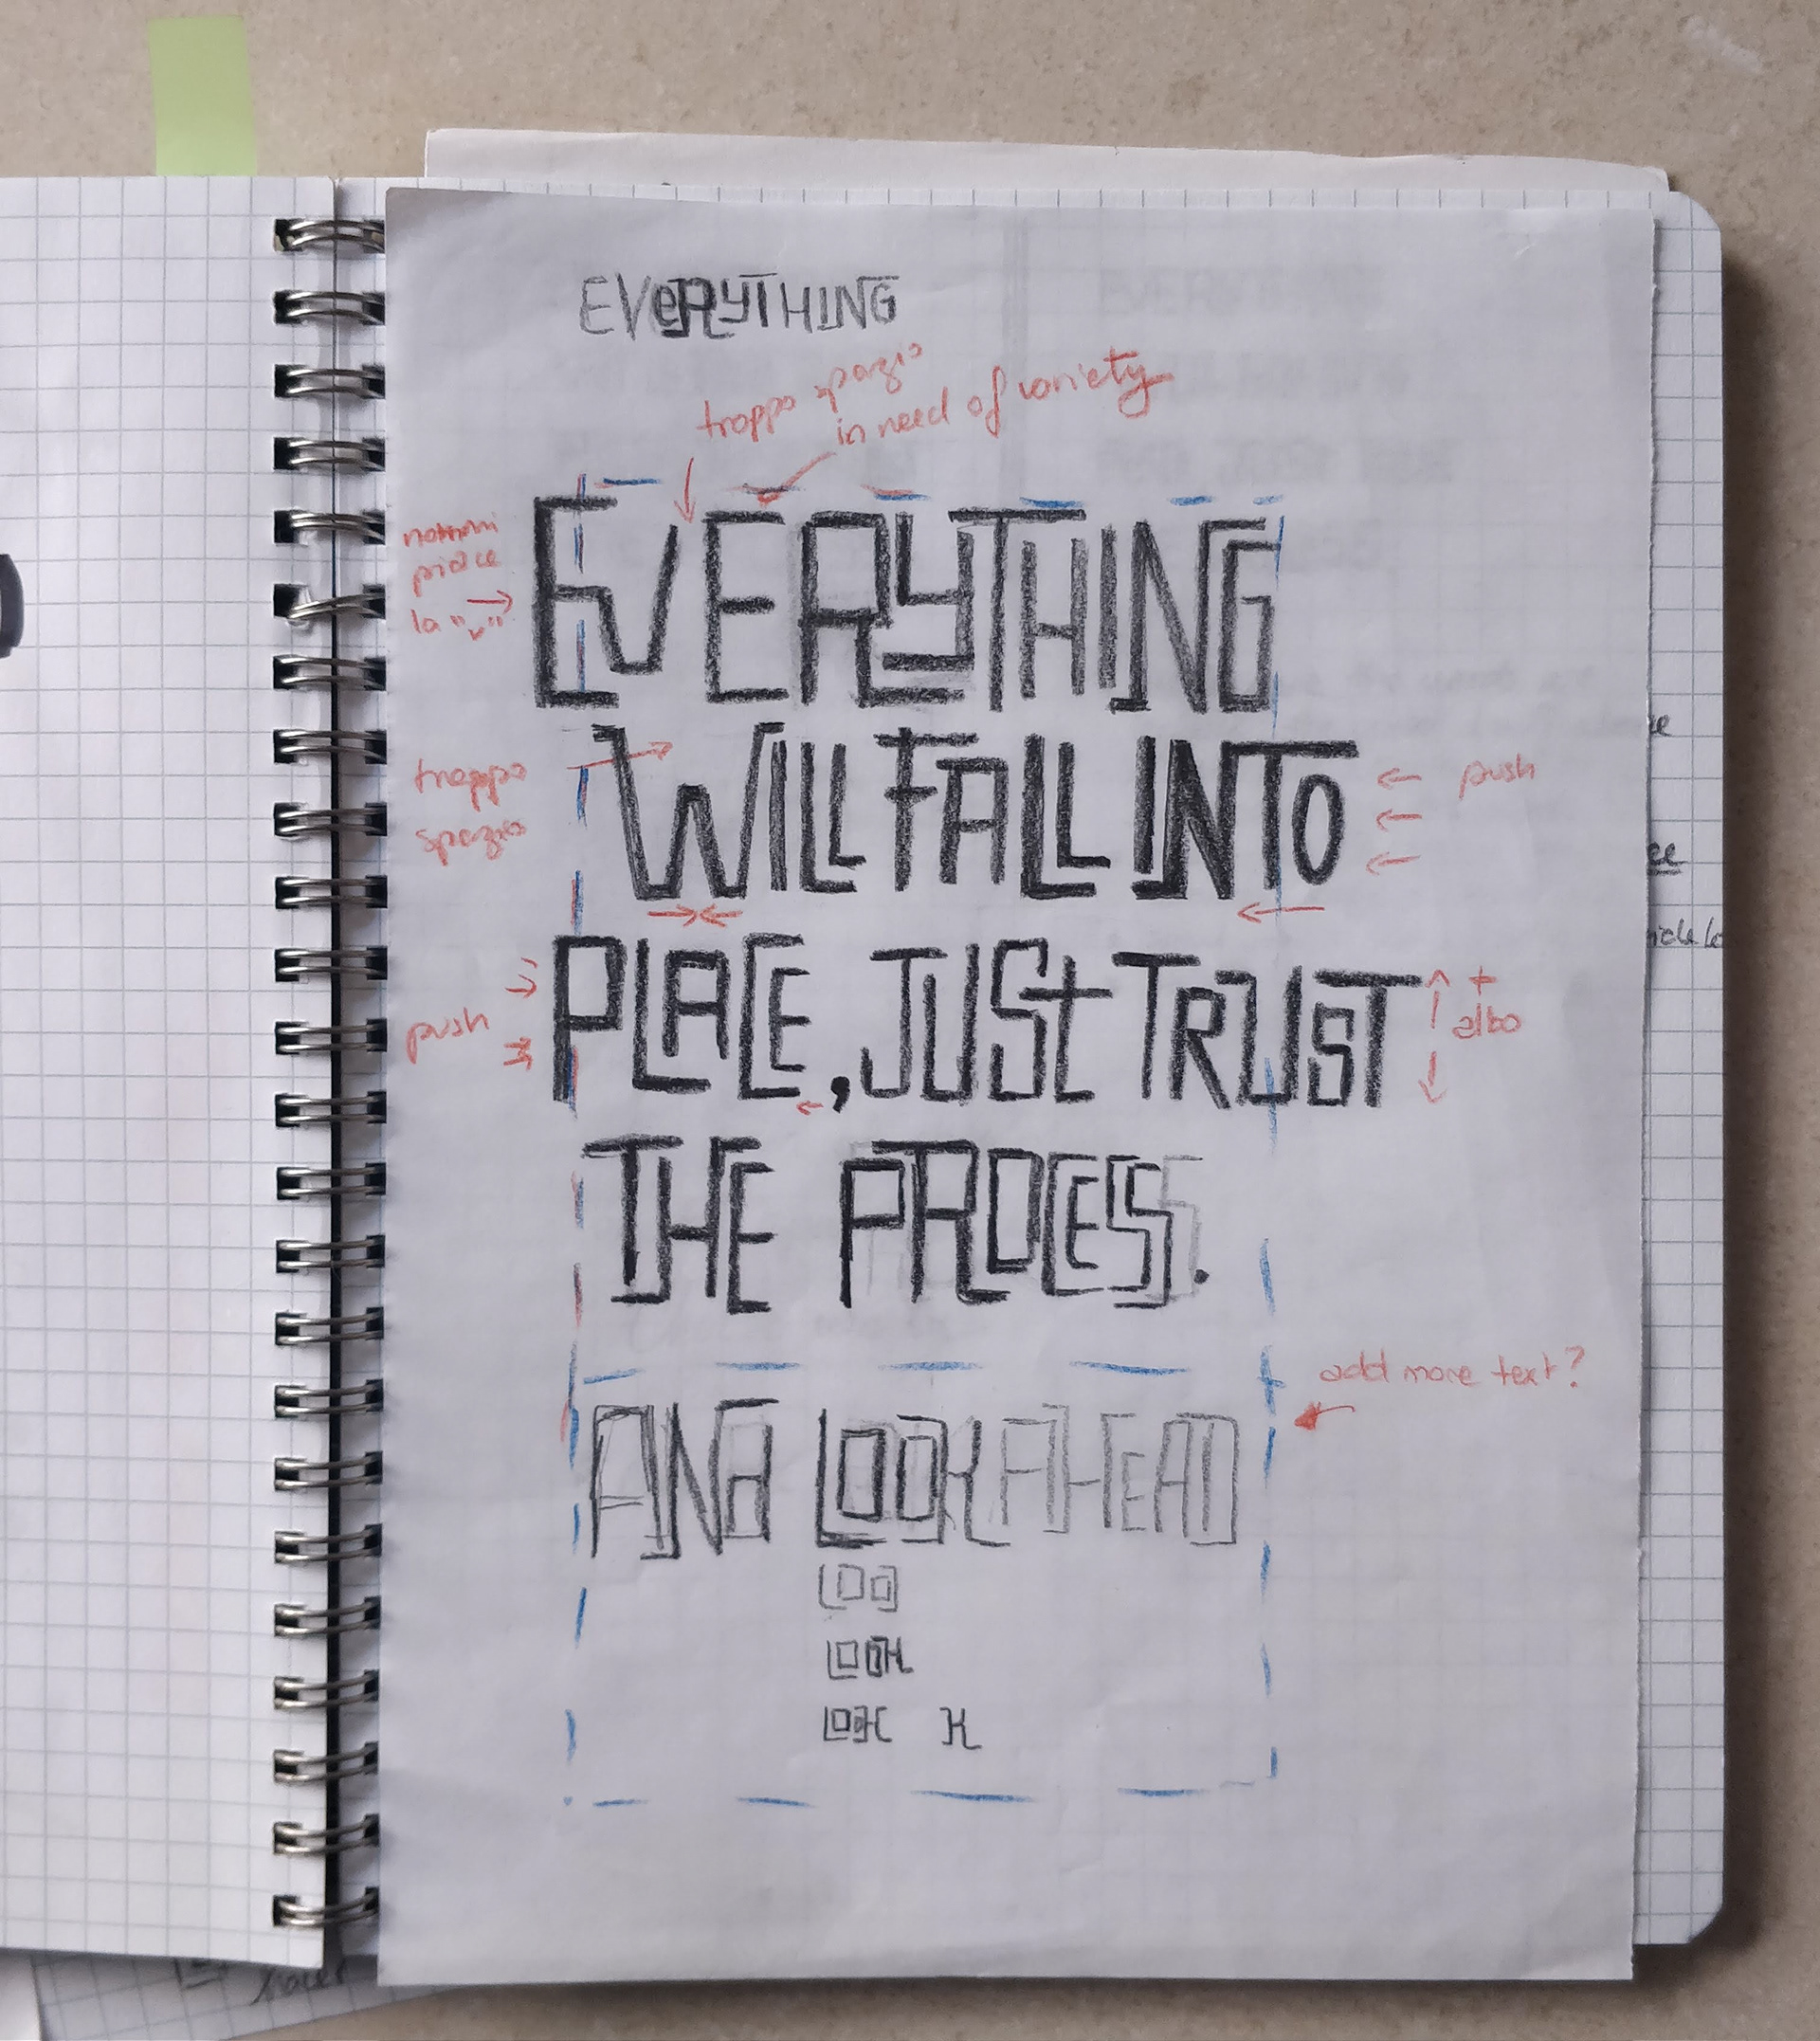 EVERYTHING
troppo spazio
in need of variety
non mi
piace
la "v"
EVERYTHING
troppo
spazio
WILL FALL INTO
push
push
PLACE, JUST TRUST
+
alto
THE PROCESS.
add more text?
AND LOOK AHEAD
LOO
LOOK
LOOK K